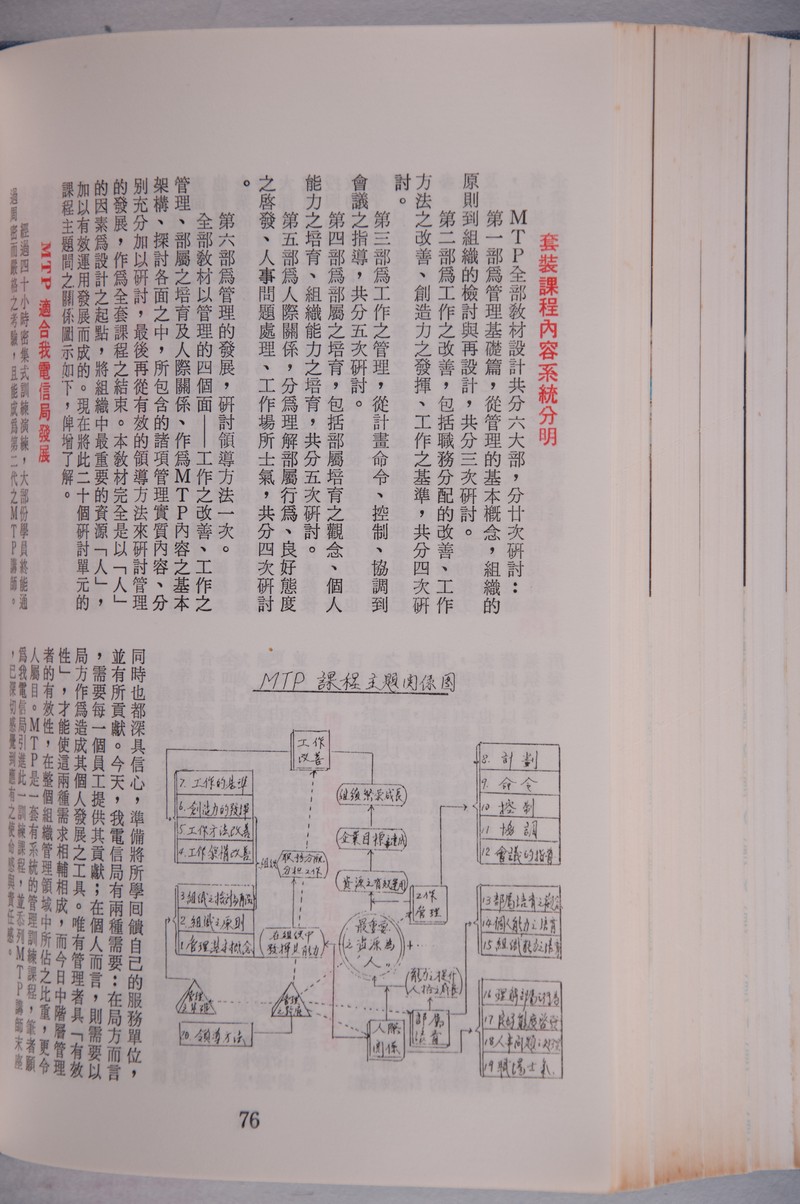 套裝課程內容系統分明
MTP全部教材設計共分六大部,分廿次研討:
第一部為管理基礎篇,從管理的基本概念,組織的
原則到組織的檢討與再設計,共分三次研討。
第二部為工作之改善,包括職務分配的改善、工作
方法之改善、創造力之發揮、工作之基準,共分四次研
討。
第三部為工作之管理,從計畫命令、控制、協調到
會議之指導,共分五次研討。
第四部為部屬之培育,包括部屬培育之觀念、個人
能力之培育、組織能力之培育,共分五次研討。
第五部為人際關係,分為理解部屬行為、良好態度
之啓發、人事問題處理、工作場所士氣,共分四次研討
。
第六部為管理的發展,研討領導方法一次。
全部教材以管理的四個面——工作之改善、工作之
管理、部屬之培育及人際關係、作為MTP內容之基本
架構、探討各面之中,所包含的諸項管理實質內容、分
別充分加以研討,最後再從有效的領導方法來研討管理
的發展,作為全套課程之結束。本教材完全是以「人」
的因素為設計之起點,將組織中最重要的資源「人」,
加以有效運用發展而成的。現在將此二十個研討單元的
課程主題間之關係圖示如下,俾增了解。
MTP適合我電信局發展
經過四十小時密集式訓練演練,大部份學員終能通
過周密而嚴格之考驗,且能成為第二代之MTP講師。
MTP 課程主題關係圖
工作改善
組織繁榮成長
企業目標達成
資源之有效運用
最重要之資源為“人”
工作管理
能力之提升
人格之成長
部屬培育
人際關係
在組織中發揮其能力
組織
7.工作的基準
6.創造力的發揮
5.工作方法改善
4.工作架構改善
2.組織之原則
1.管理基本概念
20.領導方法
8.計劃
9.命令
10控制
11協調
12會議的指導
13部屬培育之觀念
14個人能力之培育
15組織能力之培育
16理解部屬行為
17良好態度啓發
18人事問題之處理
19職場士氣
同時也都深具信心,準備將所學回饋自己的服務單位,
並有所貢獻。今天,我電信局有兩種需要:在局方而言
,需要每一個員工提供其貢獻;在個人而言,則需要以
局方作為造成其個人發展之工具。唯有管理者具「有效
性」,才能使這兩種需求相輔相成,而今日中階層管理
者的有效性,在整個組織管理領域中所佔之比重,更令
人屬目。MTP是一套有系統的管理訓練課程,筆者願
為我電信局引進此一訓練課程,並忝列MTP講師末座
,已深切感覺到應有之使命感與責任感。
76